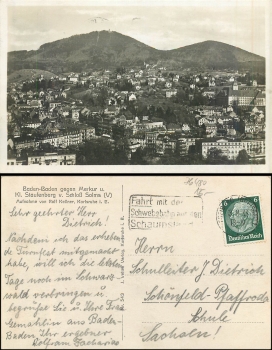 Baden-Baden gegen Merkur u.
Kl. Staufenberg v. Schloß Solms (V)
Aufnahme von Rolf Kellner, Karlsruhe i. B.
Sehr geehrter Herr
Dietrich!
Nachdem ich das erhebende
habe, will ich die letzten
Tage noch im Schwarzwald
verbringen u.
begrüße Sie u. Ihre Frau
Gemahlin aus Baden-
Baden. Ihr ergebener
Fährt mit der
Schwebebahn auf den
Schauinsland
6 6
Deutsches Reich
Herrn
Schulleiter J. Dietrich
Schönfeld-Pfaffroda
Schule
Sachsen!